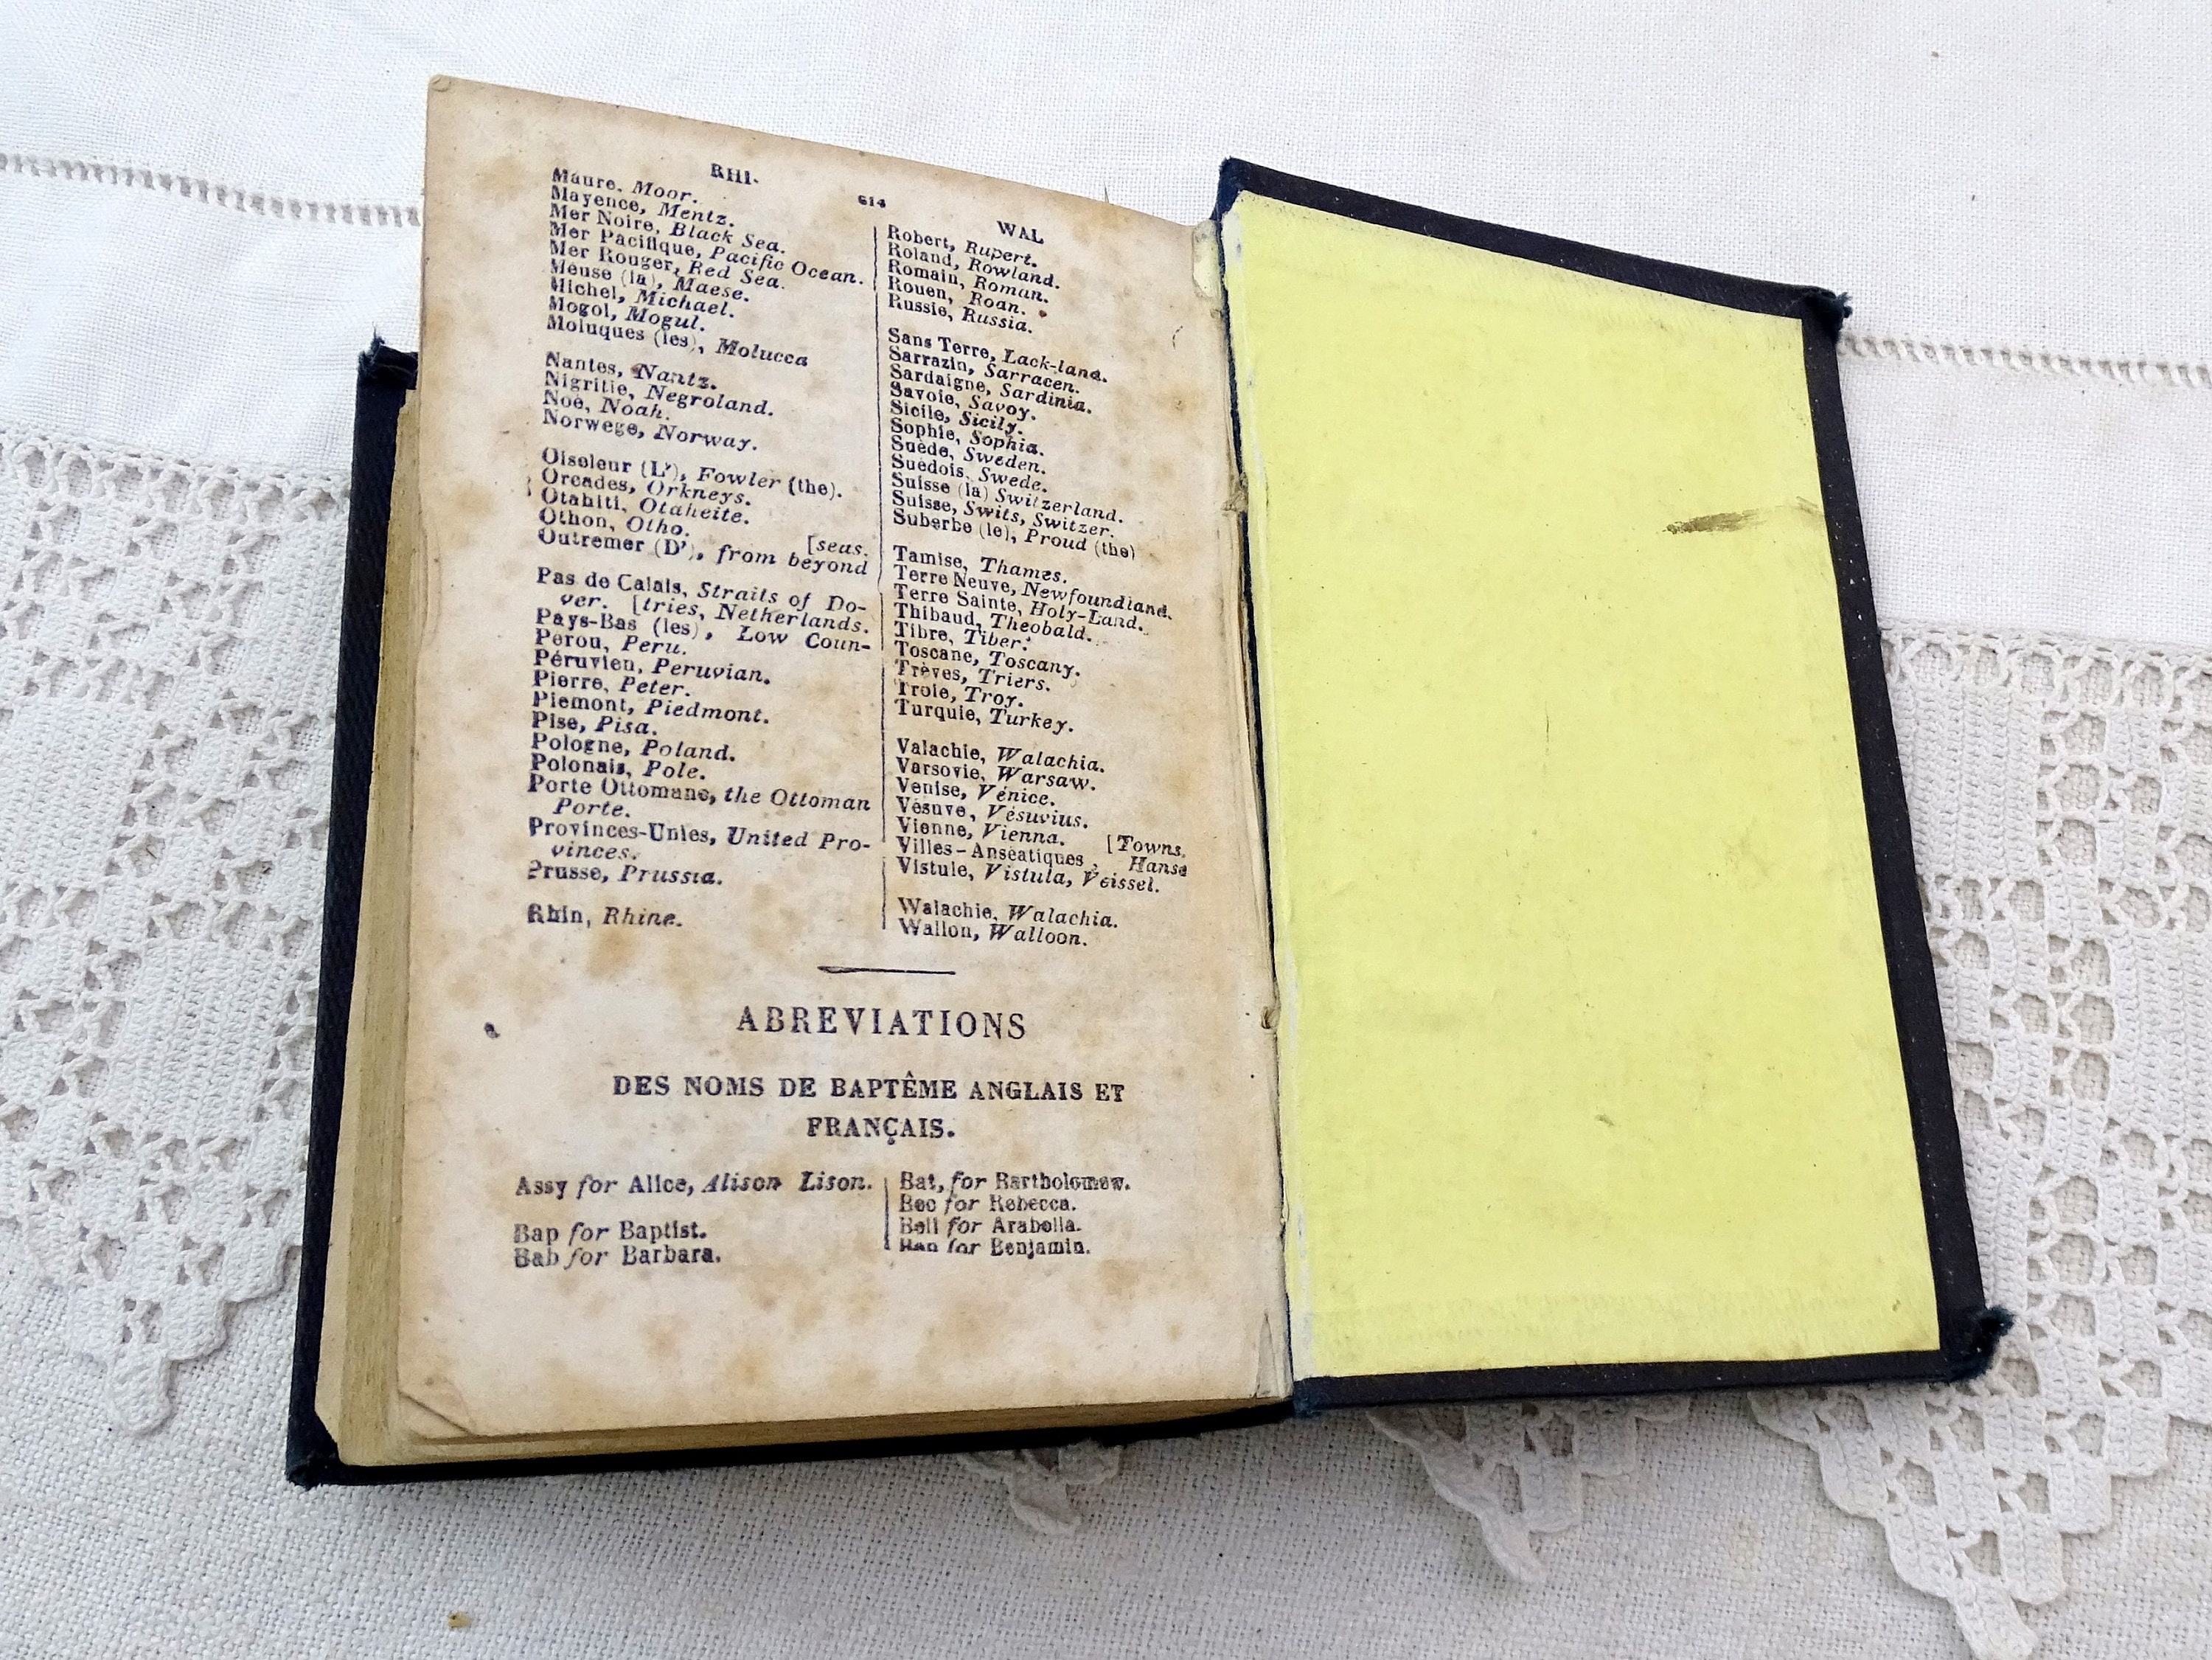 RHI.
614
WAL
Maure. Moor.
Mayence, Mentz.
Mer Noire, Black Sea.
Mer Pacifique, Pacific Ocean.
Mer Rouger, Red Sea.
Meuse (la), Maese.
Michel, Michael.
Mogol, Mogul.
Moluques (les), Molucca
Nantes, Nantz.
Nigritie, Negroland.
Noé, Noah.
Norwege, Norway.
Oiseleur (L'), Fowler (the).
Orcades, Orkneys.
Otahiti, Otaheite.
Othon, Otho. [seas.
Outremer (D'), from beyond
Pas de Calais, Straits of Do-
ver. [tries, Netherlands.
Pays-Bas (les), Low Coun-
Perou, Peru.
Péruvien, Peruvian.
Pierre, Peter.
Piemont, Piedmont.
Pise, Pisa.
Pologne, Poland.
Polonais, Pole.
Porte Ottomane, the Ottoman
Porte.
Provinces-Unies, United Pro-
vinces.
Prusse, Prussia.
Rhin, Rhine.
Robert, Rupert.
Roland, Rowland.
Romain, Roman.
Rouen, Roan.
Russie, Russia.
Sans Terre, Lack-land.
Sarrazin, Sarracen.
Sardaigne, Sardinia.
Savoie, Savoy.
Sicile, Sicily.
Sophie, Sophia.
Suède, Sweden.
Suedois, Swede.
Suisse (la) Switzerland.
Suisse, Swits, Switzer.
Suberbe (le), Proud (the)
Tamise, Thames.
Terre Neuve, Newfoundland.
Terre Sainte, Holy-Land.
Thibaud, Theobald.
Tibre, Tiber.
Toscane, Toscany.
Trèves, Triers.
Troie, Troy.
Turquie, Turkey.
Valachie, Walachia.
Varsovie, Warsaw.
Venise, Vénice.
Vésuve, Vésuvius.
Vienne, Vienna. [Towns.
Villes-Anséatiques, Hanse
Vistule, Vistula, Veissel.
Walachie, Walachia.
Wallon, Walloon.
ABREVIATIONS
DES NOMS DE BAPTÊME ANGLAIS ET
FRANÇAIS.
Assy for Alice, Alison Lison.
Bap for Baptist.
Bab for Barbara.
Bat, for Bartholomew.
Bec for Rebecca.
Bell for Arabella.
Ben for Benjamin.